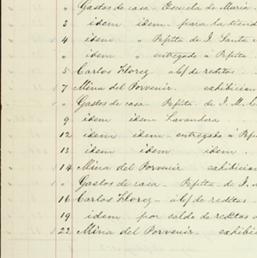 " Gastos de casa Escuela de Maria
2 idem idem para la tienda
4 idem " Pepita de J. Santa
" idem " entregado a Pepita
5 Carlos Florez a/c/ de reditos
7 Mina del Porvenir exhibicion
" Gastos de casa Pepita de J. M. L
9 idem idem Lavandera
12 idem idem entregado a Pep
13 idem idem idem
14 Mina del Porvenir exhibicion
" Gastos de casa Pepita de J.
16 Carlos Florez a/c/ de reditos
19 idem por saldo de reditos
22 Mina del Porvenir exhibi